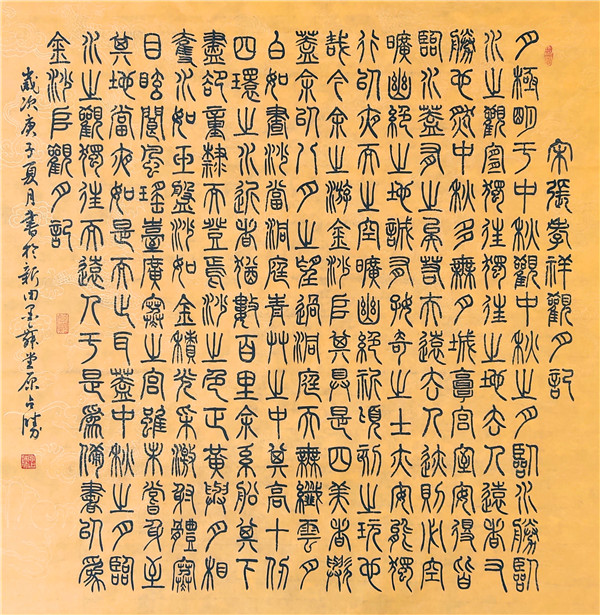 宋張孝祥觀月記
月極明于中秋觀中秋之月臨水勝臨
水之觀宜獨往獨往之地去人遠者又
勝也然中秋多無月城郭宮室安得皆
臨水蓋有之矣若夫遠去人迹則必空
曠幽絕之地誠有好奇之士亦安能獨
行以夜而之空曠幽絕蘄頃刻之玩也
哉今余之游金沙堆其具是四美者歟
蓋余以八月之望過洞庭天無纖雲月
白如晝沙當洞庭青草之中其高十仞
四環之水近者猶數百里余系船其下
盡卻童隸而登焉沙之色正黃與月相
奪水如玉盤沙如金積光采激射體寒
目眩閬風瑤臺廣寒之宮雖未嘗身至
其地當亦如是而止耳蓋中秋之月臨
水之觀獨往而遠人于是為備書以為
金沙堆觀月記
歲次庚子夏月書於新田堂原占勝